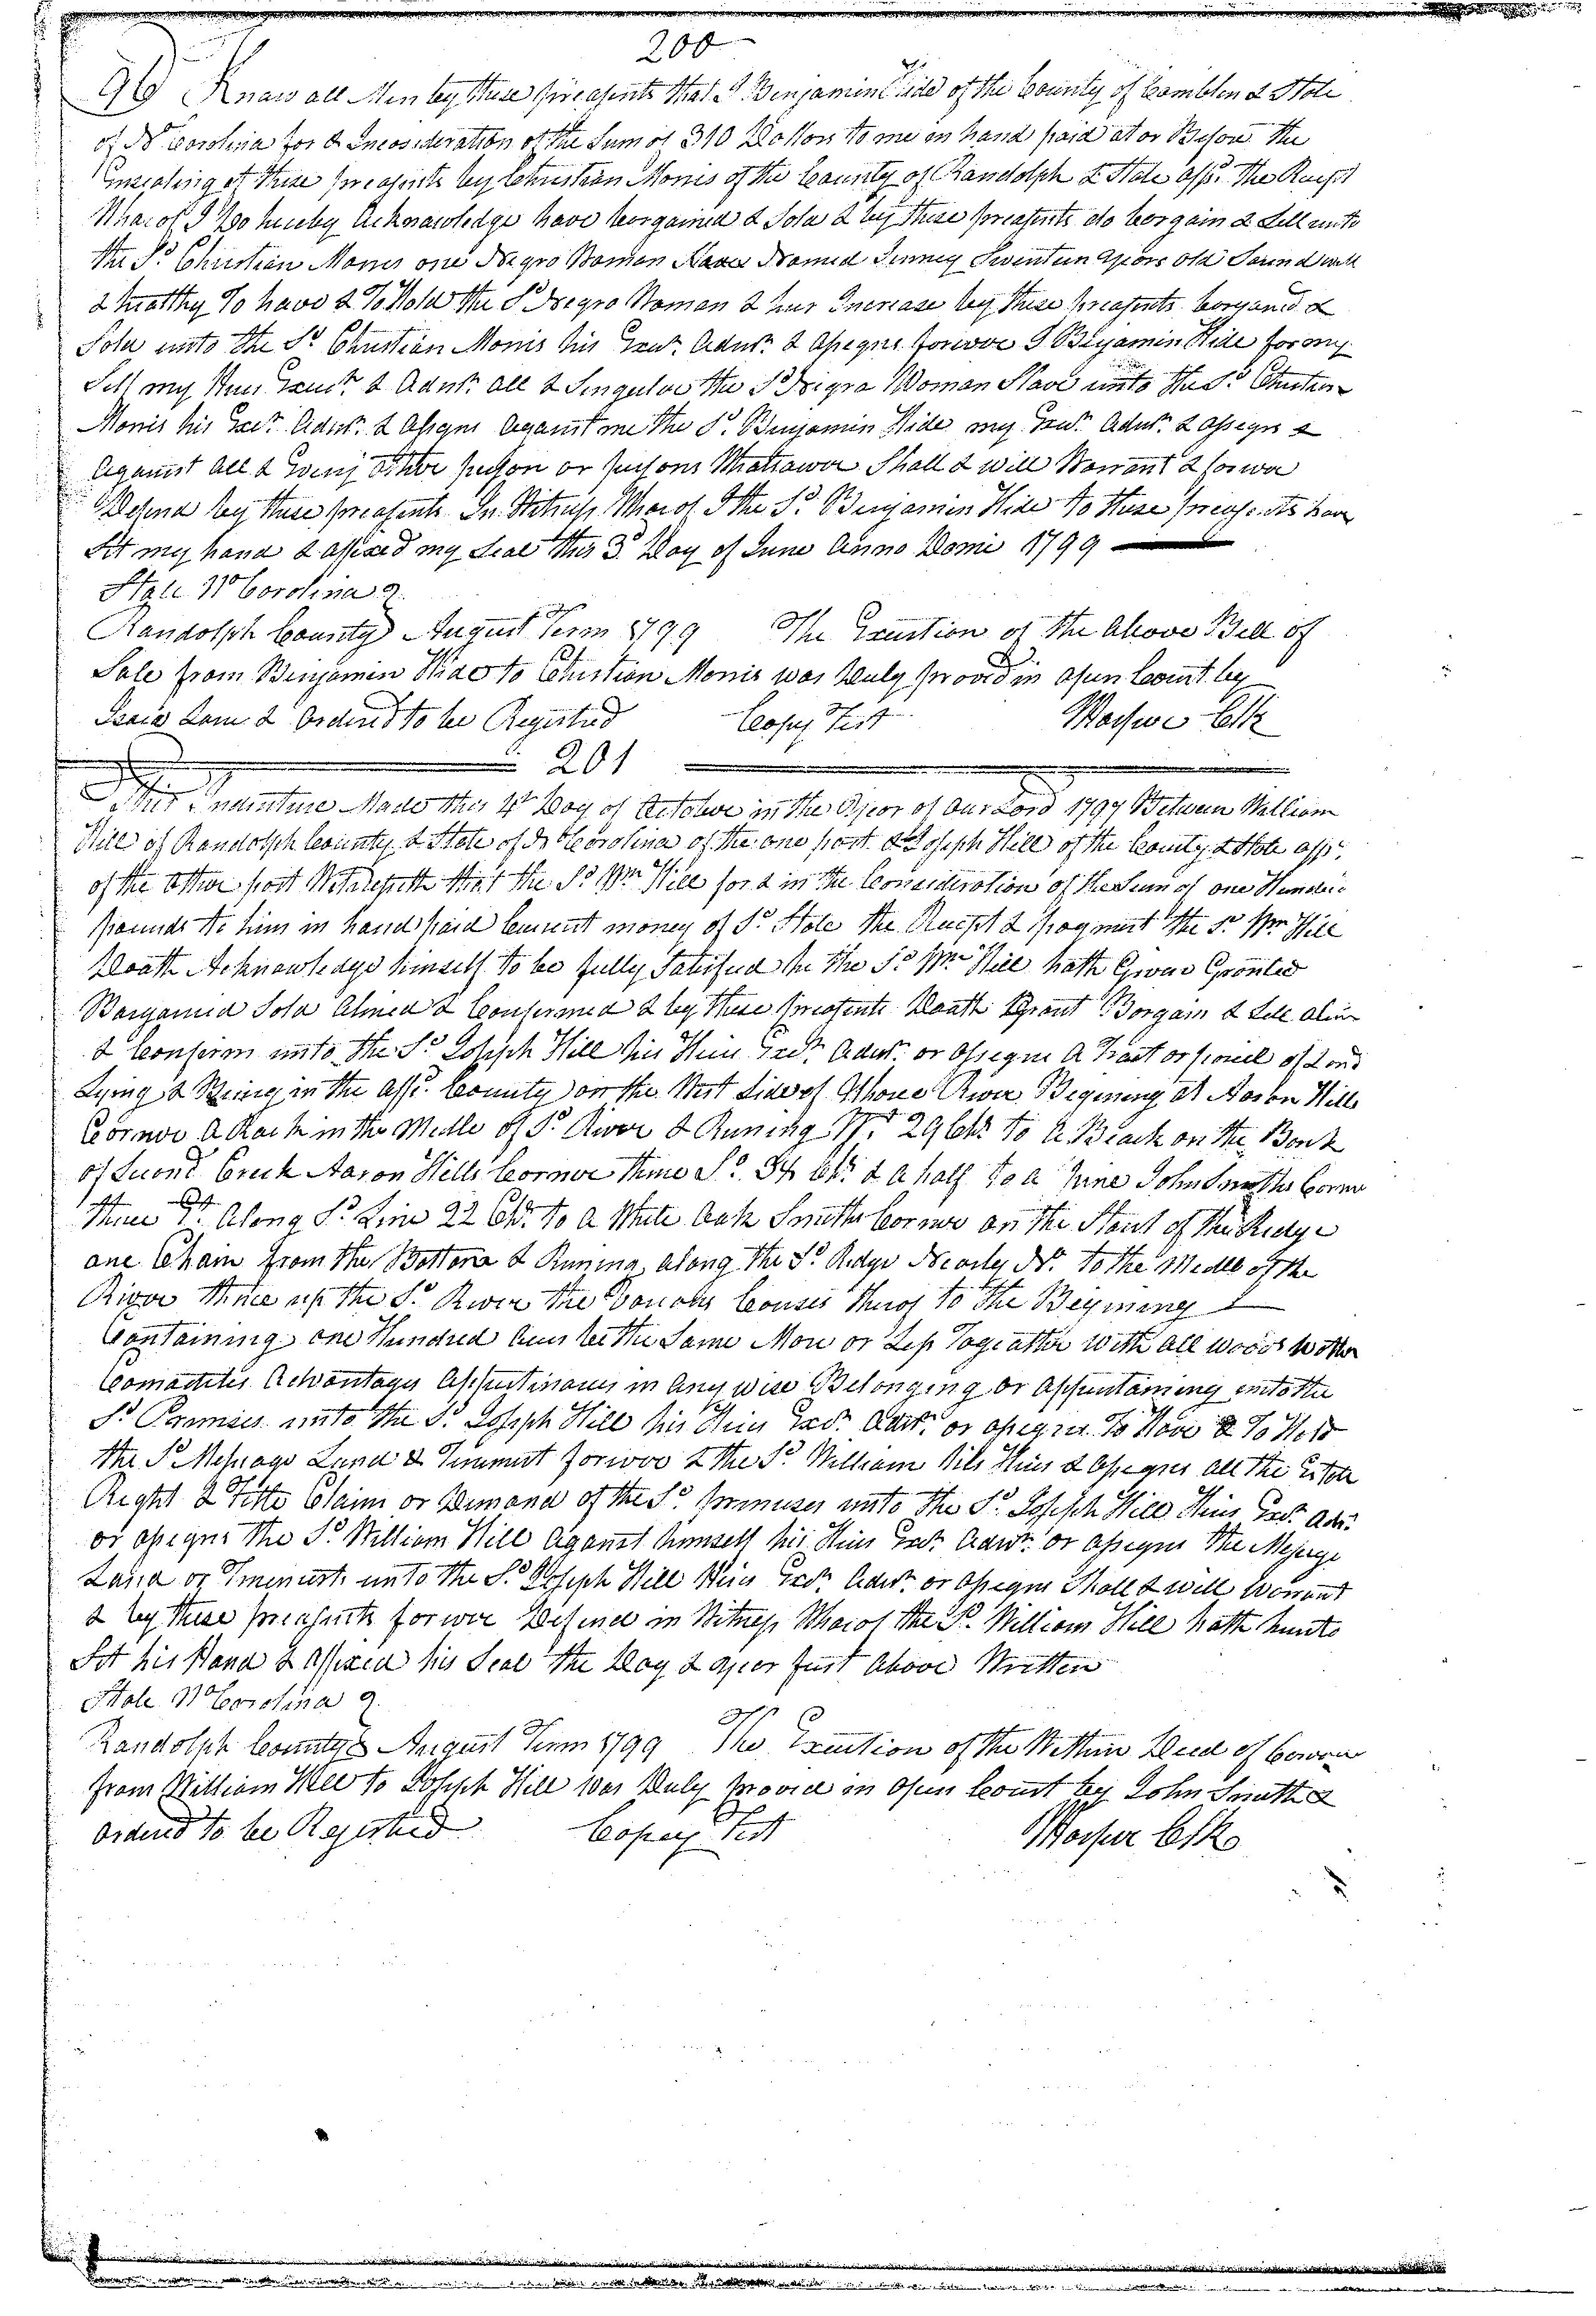 200
96 Know all Men by these preasents that I Benjamin Hide of the County of Cambden & State
of No Carolina for & Incosideration of the Sum of 310 Dollors to me in hand paid at or Before the
Ensealing of these preasents by Christian Monis of the County of Randolph & State affs. the Receipt
Wharof I Do hereby Acknowledge have borgained & Sold & by these preasents do borgain & Sell unto
the Sd. Christian Monis one Negro Woman Named Jenney Seventeen Years old Sound well
& healthy To have & To Hold the Sd Negro Woman & her Increase by these preasents borgained &
Sold unto the Sd. Christian Monis his Exec. Admr. & Assegns forever I Benjamin Hide for my
Self my Heirs Exect. & Admr. all & Singular the Sd Nigra Woman Slave unto the Sd. Christian
Monis his Exec. Admr. & Assigns Against me the Sd. Benjamin Hide my Exec. Admr. & assegns &
Against all & Every other person or persons Whatsawer Shall & will Warrant & forever
Defend by these preasents In Witness Wharof I the Sd. Benjamin Hide to these preasents have
Set my hand & affixed my Seal this 3d Day of June Anno Domi 1799
State No Carolina
Randolph County August Term 1799 The Execution of the Above Bill of
Sale from Benjamin Hide to Christian Monis was Duly proved in open Court by
Lam & Ordered to be Registred Copey Test Harper Clk
201
This Indenture Made this 4th Day of October in the Year of our Lord 1797 Between William
Hill of Randolph County & State of No Carolina of the one part & Joseph Hill of the County & State affs.
of the other part Witnesseth that the Sd. Wm Hill for & in the Consideration of the Sum of one Hundred
pounds to him in hand paid Current money of Sd. State the Receipt & payment the Sd. Wm Hill
Doath Acknowledge himself to be fully Satisfied he the Sd. Wm Hill hath Given Granted
Bargained Sold Alined & Confirmed & by these preasents Doath Grant Borgain & Sell alin
& Confirm unto the Sd. Joseph Hill his Heirs Exec. Admr. or Assegns A Tract or parcel of Land
Lying & Being in the affs. County on the West Side of Whare River Begining at Aaron Hills
Cornor A Rock in the Midle of Sd. River & Runing Wt. 29 Chs. to A Beach on the Bank
of Second Creek Aaron Hills Cornor thence So. 34 Chs. & a half to a pine John Smiths Cornor
Thence Et. Along Sd. Line 22 Chs. to a White Oak Smiths Cornor on the Slant of the Ridge
one Chain from the Bottom & Runing along the Sd. Ridge Nearly No. to the Midle of the
River thence up the Sd. River the Various Courses therof to the Begining
Containing one Hundred Acres be the Same More or Less Togeather with all woods Water
Comadities Advantages Appurtinances in Any wise Belonging or Appurtaining unto the
Sd. Premises unto the Sd. Joseph Hill his Heirs Exec. Admr. or Assegns To Have & To Hold
the Sd Mesuage Land & Tinument forever & the Sd. William Hill Heirs & Assegns all the Estate
Right & Title Claim or Demand of the Sd. premises unto the Sd. Joseph Hill Heirs Exec. Adm.
or Assegns the Sd. William Hill Against himself his Heirs Exec. Admr. or Assegns the Mesuage
Land or Tinement unto the Sd. Joseph Hill Heirs Exec. Admr. or Assegns Shall & will Worrant
& by these preasents forever Defend in Witness Wharof the Sd. William Hill hath hunto
Set his Hand & affixed his Seal the Day & year first Above Written
State No Carolina
Randolph County August Term 1799 The Execution of the Within Deed of
from William Hill to Joseph Hill was Duly proved in open Court by John Smith &
Ordered to be Registred Copey Test Harper Clk